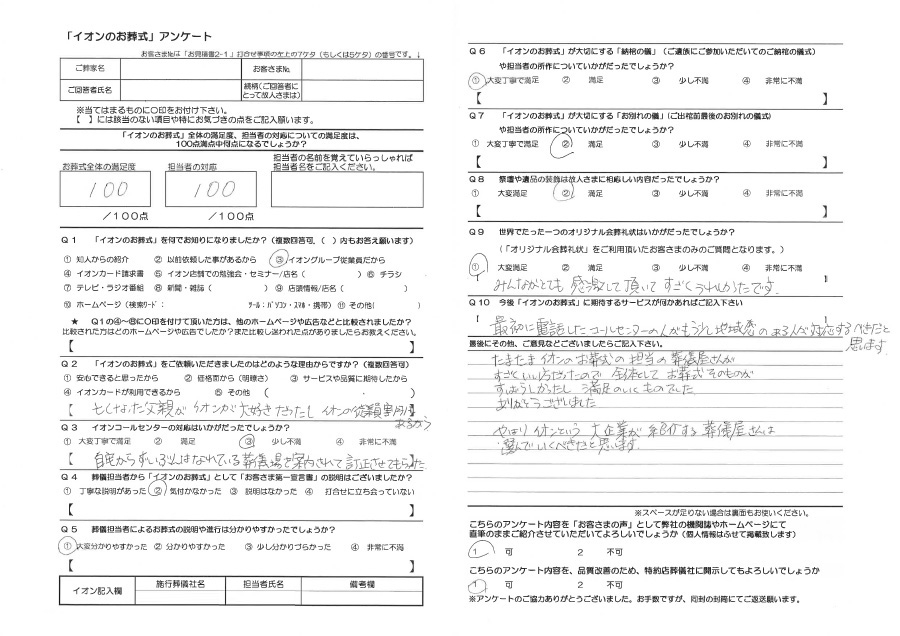 「イオンのお葬式」アンケート
お客さま№は「お見積書2-1」打合せ事項の左上の7ケタ（もしくは5ケタ）の番号です。↓
ご葬家名 お客さま№
ご回答者氏名 続柄(ご回答者にとって故人さまは)
※当てはまるものに○印をお付け下さい。
【 】には該当のない項目や特にお気づきの点をご記入願います。
「イオンのお葬式」全体の満足度、担当者の対応についての満足度は、
100点満点中何点になるでしょうか？
お葬式全体の満足度 担当者の対応 担当者の名前を覚えていらっしゃれば
担当者名をご記入ください。
100 100
／100点 ／100点
Q1 「イオンのお葬式」を何でお知りになりましたか？（複数回答可、( )内もお答え願います）
① 知人からの紹介 ② 以前依頼した事があるから ③ イオングループ従業員だから
④ イオンカード請求書 ⑤ イオン店舗での勉強会・セミナー/店名( ) ⑥ チラシ
⑦ テレビ・ラジオ番組 ⑧ 新聞・雑誌( ) ⑨ 店頭情報/店名( )
⑩ ホームページ (検索ワード： ツール：パソコン・スマホ・携帯) ⑪ その他( )
★ Q1の④～⑩に○印を付けて頂いた方は、他のホームページや広告などと比較されましたか？
比較された方はどのホームページや広告でしたか？また比較し迷われた点がありましたらお教えください。
【 】
Q2 「イオンのお葬式」をご依頼いただきましたのはどのような理由からですか？（複数回答可）
① 安心できると思ったから ② 価格面から（明瞭さ） ③ サービスや品質に期待したから
④ イオンカードが利用できるから ⑤ その他 ( )
【 亡くなった父親がイオンが大好きだったし イオンの従業員割引が】
あるから
Q3 イオンコールセンターの対応はいかがだったでしょうか？
① 大変丁寧で満足 ② 満足 ③ 少し不満 ④ 非常に不満
【 自宅からずいぶんはなれている葬儀場を案内されて訂正させてもらった 】
Q4 葬儀担当者から「イオンのお葬式」として「お客さま第一宣言書」の説明はございましたか？
① 丁寧な説明があった ② 気付かなかった ③ 説明はなかった ④ 打合せに立ち会っていない
【 】
Q5 葬儀担当者によるお葬式の説明や進行は分かりやすかったでしょうか？
① 大変分かりやすかった ② 分かりやすかった ③ 少し分かりづらかった ④ 非常に不満
【 】
イオン記入欄 施行葬儀社名 担当者氏名 備考欄
Q6 「イオンのお葬式」が大切にする「納棺の儀」（ご遺族にご参加いただいてのご納棺の儀式）
や担当者の所作についていかがだったでしょうか？
① 大変丁寧で満足 ② 満足 ③ 少し不満 ④ 非常に不満
【 】
Q7 「イオンのお葬式」が大切にする「お別れの儀」（ご出棺前最後のお別れの儀式）
や担当者の所作についていかがだったでしょうか？
① 大変丁寧で満足 ② 満足 ③ 少し不満 ④ 非常に不満
【 】
Q8 祭壇や遺品の装飾は故人さまに相応しい内容だったでしょうか？
① 大変満足 ② 満足 ③ 少し不満 ④ 非常に不満
【 】
Q9 世界でたった一つのオリジナル会葬礼状はいかがだったでしょうか？
（「オリジナル会葬礼状」をご利用頂いたお客さまのみのご質問となります。）
① 大変満足 ② 満足 ③ 少し不満 ④ 非常に不満
みんながとても感激して頂いてすごくうれしかったです。
Q10 今後「イオンのお葬式」に期待するサービスが何かあればご記入下さい
最初に電話したコールセンターの人がもう少し地域感のある人が対応するべきだと
思います
最後にその他、ご意見などございましたらご記入下さい。
たまたまイオンのお葬式の担当の葬儀屋さんが
すごくいい方だったので 全体としてお葬式そのものが
すばらしかったし 満足のいくものでした
ありがとうございました
やはりイオンという大企業が紹介する葬儀屋さんは
選んでいくべきだと思います。
※スペースが足りない場合は裏面もお使いください。
こちらのアンケート内容を「お客さまの声」として弊社の機関誌やホームページにて
直筆のままご紹介させていただいてよろしいでしょうか（個人情報はふせて掲載致します）
1 可 2 不可
こちらのアンケート内容を、品質改善のため、特約店葬儀社に開示してもよろしいでしょうか
1 可 2 不可
※アンケートのご協力ありがとうございました。お手数ですが、同封の封筒にてご返送願います。